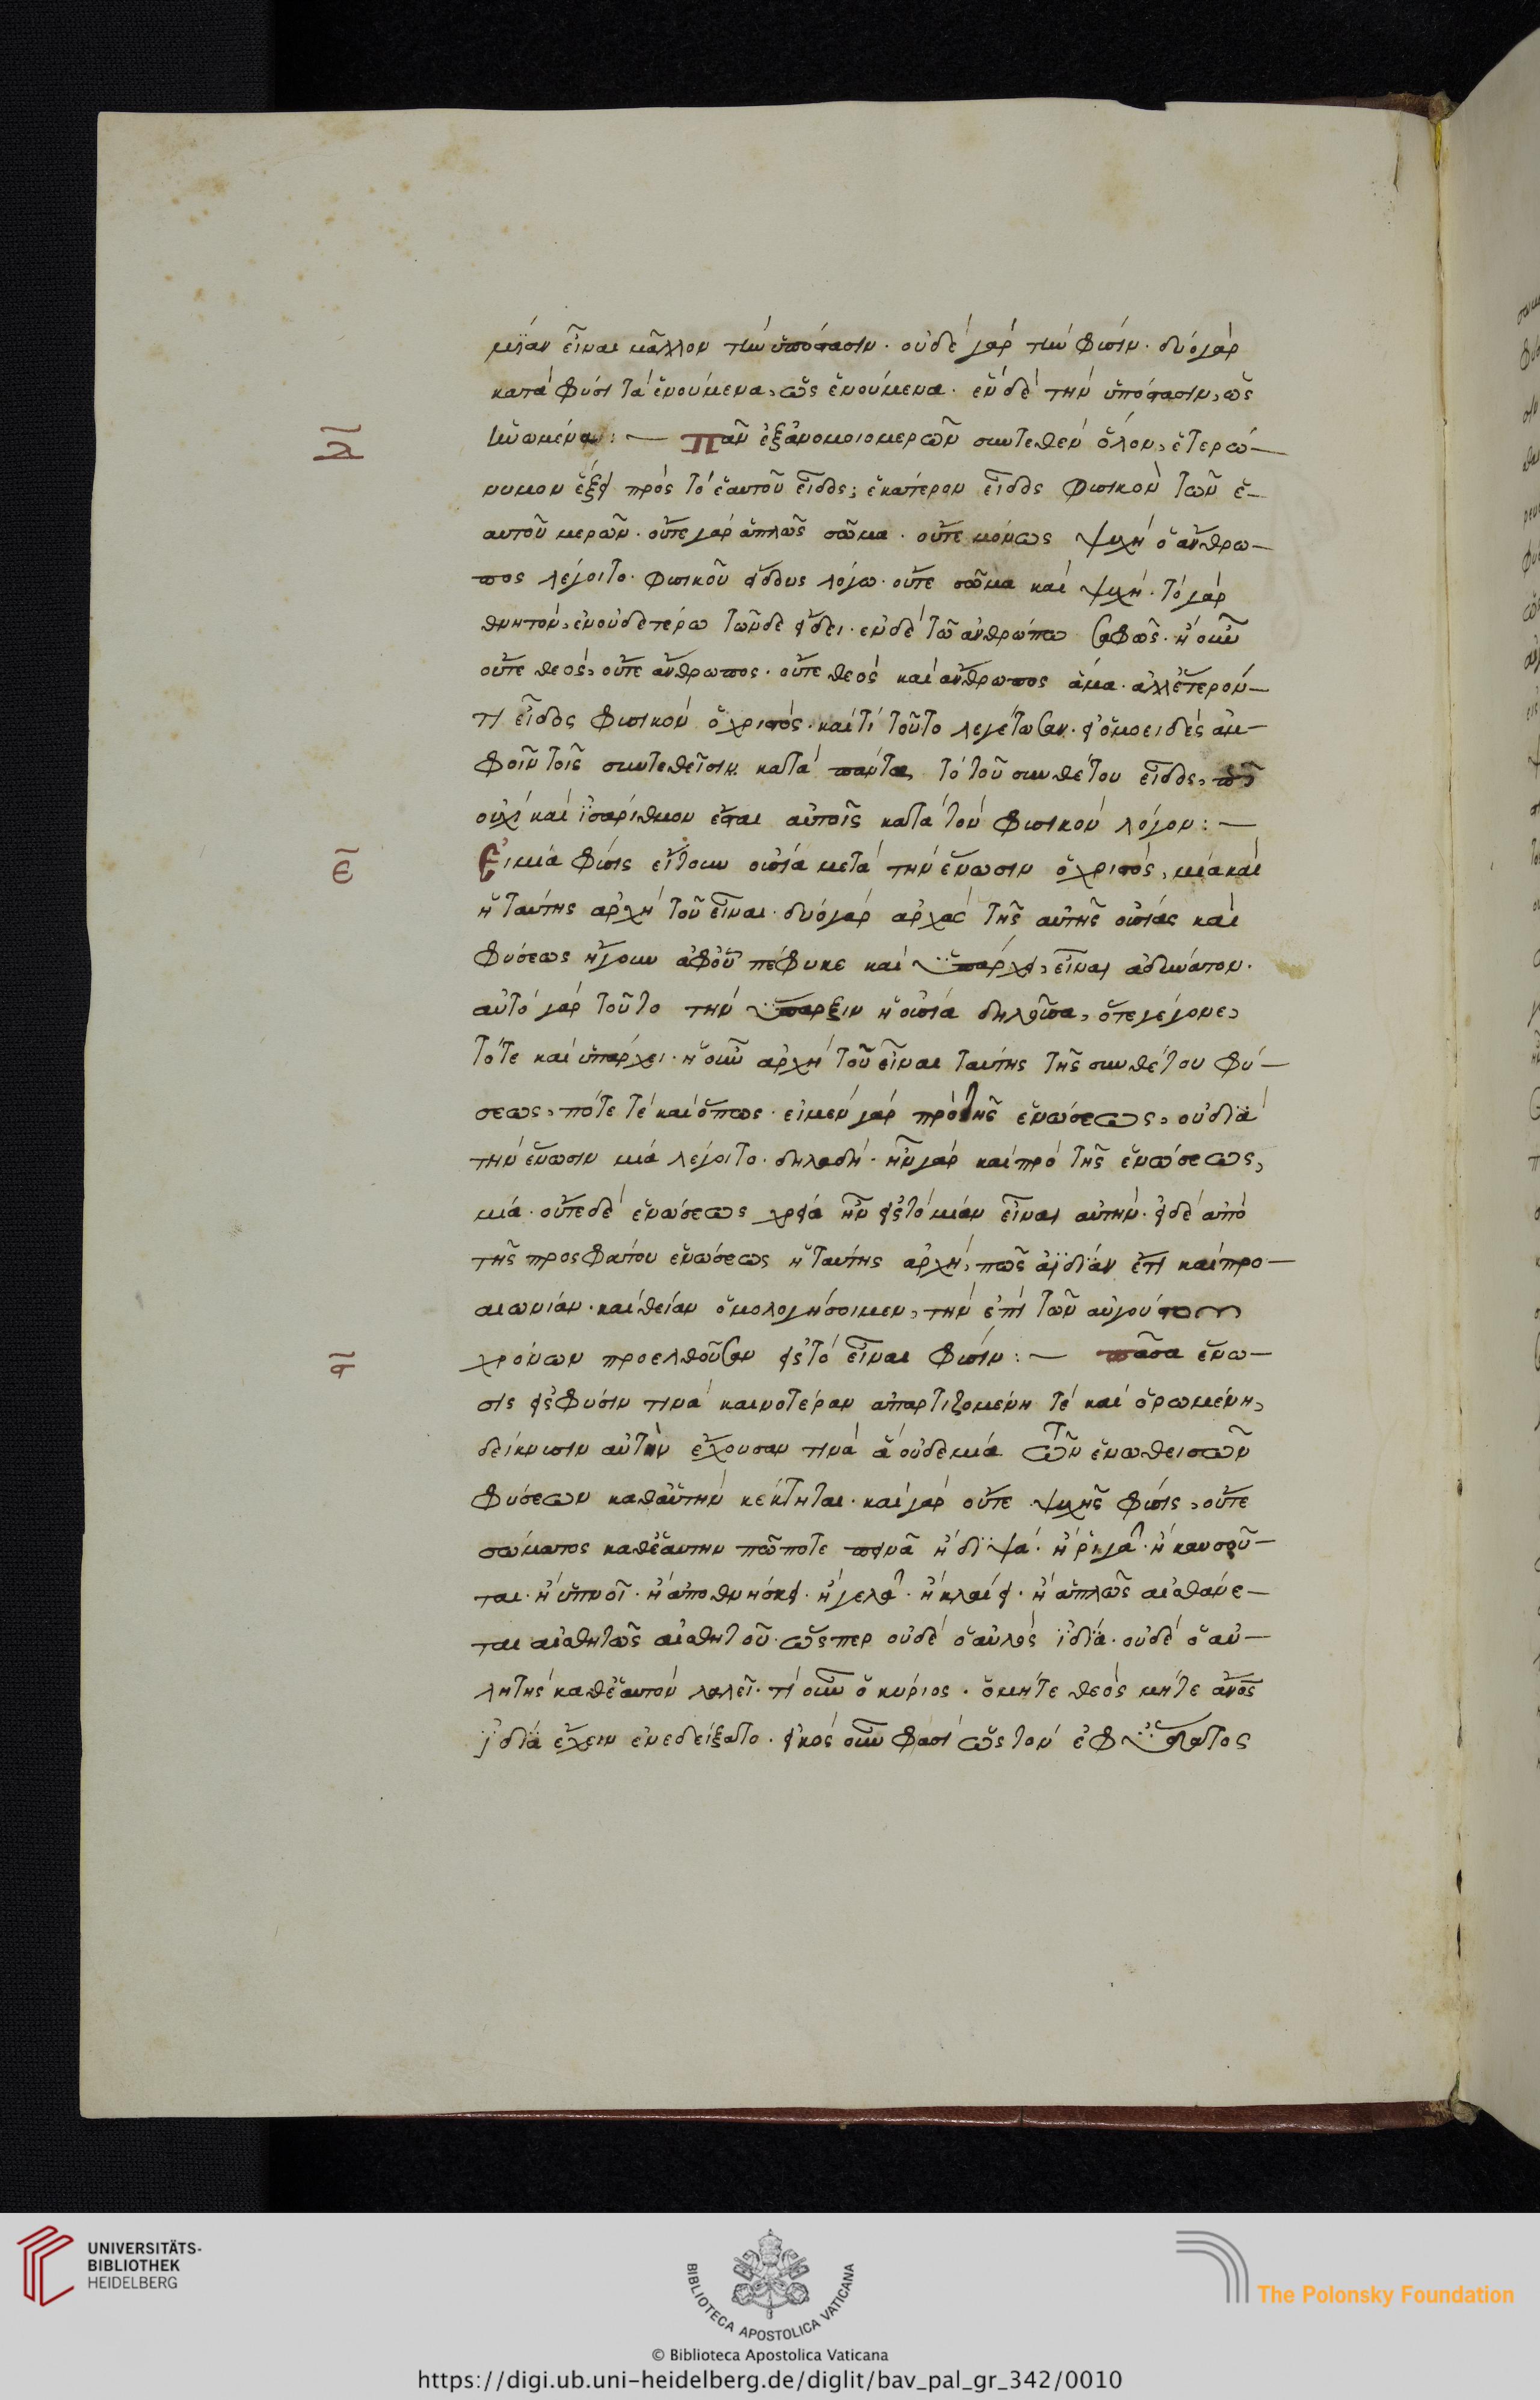 μίαν εἶναι μᾶλλον τὴν ὑπόστασιν· οὐδὲ γὰρ τὴν φύσιν· δύο γὰρ
κατὰ φύσι τὰ ἑνούμενα, ὡς ἑνούμενα· ἓν δὲ τὴν ὑπόστασιν, ὡς
ἡνωμένα :— Πᾶν ἐξ ἀνομοιομερῶν συντεθὲν ὅλον, ἑτερώ-
δ̄
νυμον ἕξει πρὸς τὸ ἑαυτοῦ εἶδος; ἑκατέρον εἶδος φυσικὸν τῶν ἑ-
αυτοῦ μερῶν· οὔτε γὰρ ἁπλῶς σῶμα· οὔτε μόνως ψυχὴ ὁ ἄνθρω-
πος λέγοιτο· φυσικοῦ εἴδους λόγω· οὔτε σῶμα καὶ ψυχή· τὸ γὰρ
θνητόν, ἐν οὐδετέρω τῶνδε εἴδει· ἐν δὲ τῶ ἀνθρώπω σαφῶς· ἢ οὖν
οὔτε θεός, οὔτε ἄνθρωπος· οὔτε θεὸς καὶ ἄνθρωπος ἅμα· ἀλλ' ἕτερόν
τι εἶδος φυσικὸν ὁ χριστός· καὶ τί τοῦτο λεγέτωσαν· εἰ ὁμοειδὲς ἀμ-
φοῖν τοῖς συντεθεῖσιν κατὰ πάντα, τὸ τοῦ συνθέτου εἶδος, πῶς
οὐχὶ καὶ ἰσαρίθμον ἔσται αὐτοῖς κατὰ τὸν φυσικὸν λόγον :—
ε̄
Εἰ μία φύσις εἴτουν οὐσία μετὰ τὴν ἕνωσιν ὁ χριστός, μία καὶ
ἡ ταύτης ἀρχὴ τοῦ εἶναι· δύο γὰρ ἀρχὰς τῆς αὐτῆς οὐσίας καὶ
φύσεως ἤγουν ἀφ' οὗ πέφυκε καὶ ὑπάρχει, εἶναι ἀδύνατον·
αὐτὸ γὰρ τοῦτο τὴν ὕπαρξιν ἡ οὐσία δηλοῦσα, ὅτε γέγονε,
τότε καὶ ὑπάρχει· ἡ οὖν ἀρχὴ τοῦ εἶναι ταύτης τῆς συνθέτου φύ-
σεως, πότε τὲ καὶ ὅπως· εἰ μὲν γὰρ πρὸ τῆς ἑνώσεως, οὐ διὰ
τὴν ἕνωσιν μία λέγοιτο· δηλαδή· ἦν γὰρ καὶ πρὸ τῆς ἑνώσεως,
μία· οὔτε δὲ ἑνώσεως χρεία ἦν εἰς τὸ μίαν εἶναι αὐτήν· εἰ δὲ ἀπὸ
τῆς προσφάτου ἑνώσεως ἡ ταύτης ἀρχή, πῶς ἀϊδίαν ἔτι καὶ προ-
αιωνίαν· καὶ θείαν ὁμολογήσοιμεν, τὴν ἐπὶ τῶν αὐγούστου
χρόνων προελθοῦσαν εἰς τὸ εἶναι φύσιν :— πᾶσα ἕνω-
ϛ̄
σις εἰς φύσιν τινὰ καινοτέραν ἀπαρτιζομένη τὲ καὶ ὁρωμένη,
δείκνυσιν αὐτὴν ἔχουσαν τινὰ ἃ οὐδεμία τῶν ἑνωθεισῶν
φύσεων καθ' αὑτὴν κέκτηται· καὶ γὰρ οὔτε ψυχῆς φύσις, οὔτε
σώματος καθ' ἑαυτὴν πώποτε πεινᾶ ἢ διψᾶ· ἢ ῥιγᾶ· ἢ καυσοῦ-
ται· ἢ ὑπνοῖ· ἢ ἀποθνήσκει· ἢ γελᾶ· ἢ κλαίει· ἢ ἁπλῶς αἰσθάνε-
ται αἰσθητῶς αἰσθητοῦ· ὥσπερ οὐδὲ ὁ αὐλὸς ἰδία· οὐδὲ ὁ αὐ-
λητὴς καθ' ἑαυτὸν λαλεῖ· τί οὖν ὁ κύριος· ὃ μήτε θεὸς μήτε ἄνος
ἰδία ἔχειν ἐνεδείξατο· εἰκὸς οὖν φασὶ ὡς τὸν ἐφ' ὕδατος
UNIVERSITÄTS-
BIBLIOTHEK
HEIDELBERG
BIBLIOTECA APOSTOLICA VATICANA
The Polonsky Foundation
© Biblioteca Apostolica Vaticana
https://digi.ub.uni-heidelberg.de/diglit/bav_pal_gr_342/0010